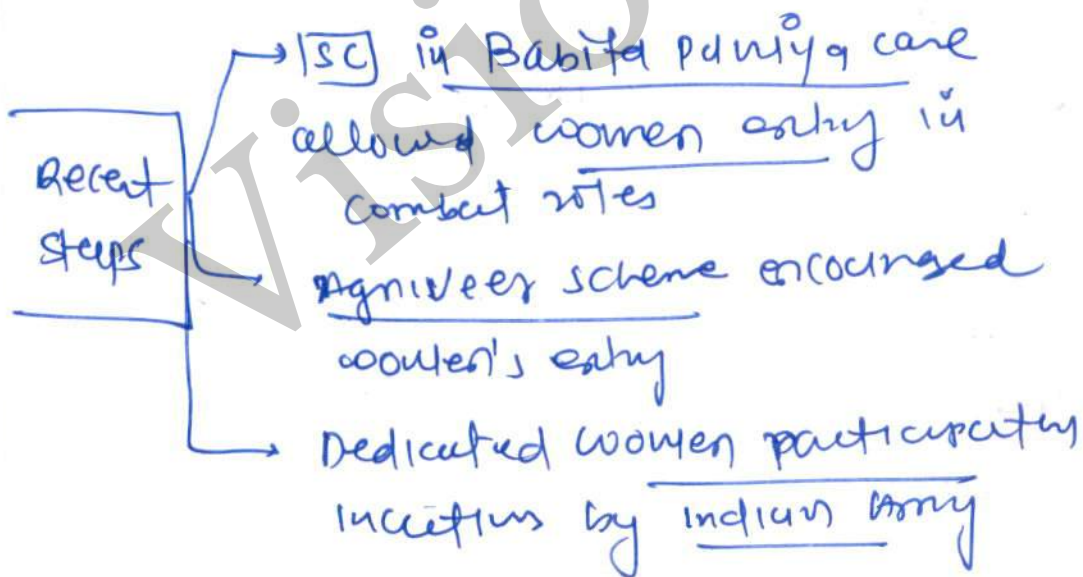 Recent
Steps
→ SC in Babita Puniya case
allowed women entry in
combat roles
→ Agniveer scheme encouraged
women's entry
→ Dedicated women participation
by Indian Army
Visio